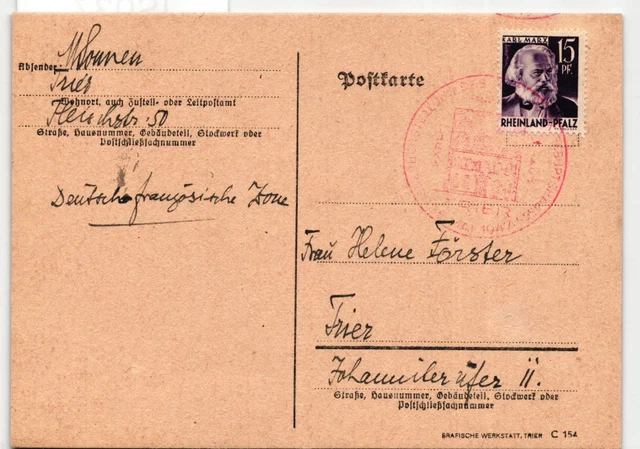 Absender:
Trier
Wohnort, auch Zustell- oder Leitpostamt
50
Straße, Hausnummer, Gebäudeteil, Stockwerk oder
Postschließfachnummer
Deutsch französische Zone
Postkarte
KARL MARX
15
PF.
RHEINLAND-PFALZ
TRIER
1947
Frau Helene Förster
Trier
Johanniterufer 11.
Straße, Hausnummer, Gebäudeteil, Stockwerk oder
Postschließfachnummer
GRAFISCHE WERKSTATT, TRIER C 154